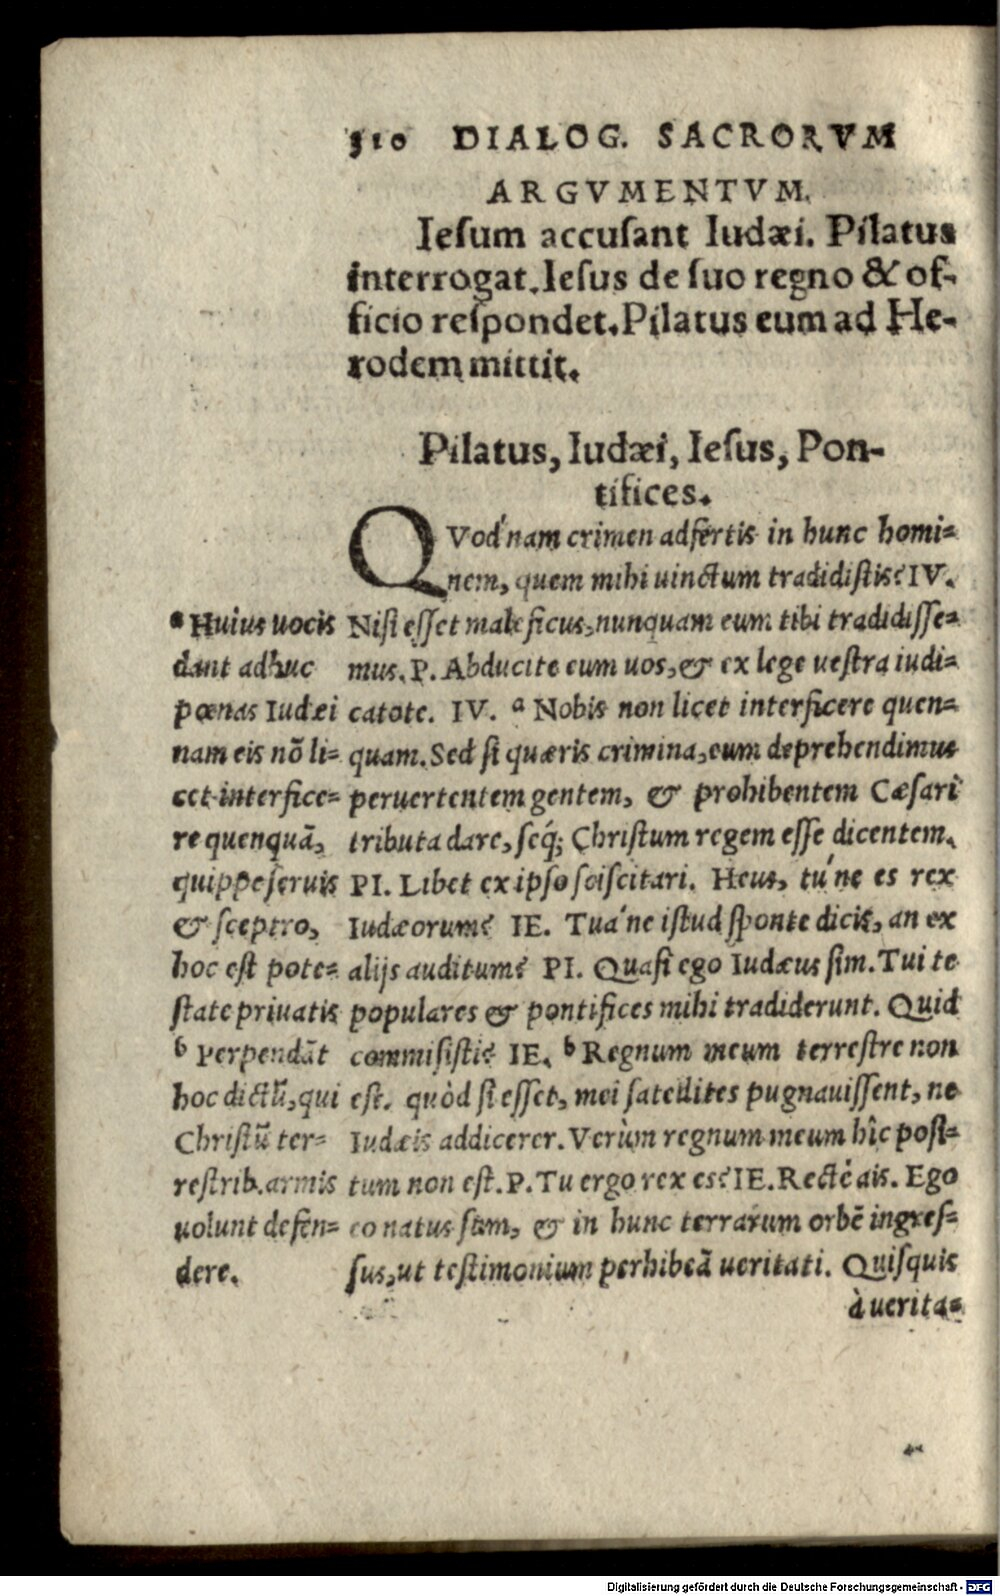 310 DIALOG. SACRORVM
ARGVMENTVM.
Iesum accusant Iudæi. Pilatus
interrogat. Iesus de suo regno & of-
ficio respondet. Pilatus eum ad He-
rodem mittit.
Pilatus, Iudæi, Iesus, Pon-
tifices.
QVod'nam crimen adfertis in hunc homi-
nem, quem mihi uinctum tradidistis? IV.
Nisi esset maleficus, nunquam eum tibi tradidisse-
mus. P. Abducite eum uos, & ex lege uestra iudi-
catote. IV. a Nobis non licet interficere quen-
quam. Sed si quæris crimina, eum deprehendimus
peruertentem gentem, & prohibentem Cæsari
tributa dare, seq́; Christum regem esse dicentem.
PI. Libet ex ipso sciscitari. Heus, tu'ne es rex
Iudæorum? IE. Tua'ne istud sponte dicis, an ex
alijs auditum? PI. Quasi ego Iudæus sim. Tui te
populares & pontifices mihi tradiderunt. Quid
commisisti? IE. b Regnum meum terrestre non
est. quòd si esset, mei satellites pugnauissent, ne
Iudæis addicerer. Verùm regnum meum hîc posi-
tum non est. P. Tu ergo rex es? IE. Rectè ais. Ego
eo natus sum, & in hunc terrarum orbē ingres-
sus, ut testimonium perhibeā ueritati. Quisquis
à uerita-
a Huius uocis
dant adhuc
pœnas Iudæi
nam eis nō li-
cet interfice-
re quenquā,
quippe seruis
& sceptro,
hoc est pote-
state priuatis
b Perpendāt
hoc dictū, qui
Christū ter-
restrib. armis
uolunt defen-
dere.
Digitalisierung gefördert durch die Deutsche Forschungsgemeinschaft - DFG